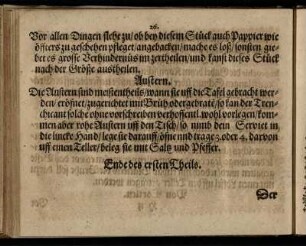 26.
Vor allen Dingen siehe zu/ ob bey diesem Stück auch Pappier wie
öffters zu geschehen pfleget/ angebacken/ mache es loß/ sonsten gie-
bet es grosse Verhindernüs im zertheilen/ und kanst dieses Stück
nach der Grösse austheilen.
Austern.
Die Austern sind meistentheils/ wann sie uff die Tafel gebracht wer-
den/ eröfnet/ zugerichtet mit Brüh oder gebraté/ so kan der Tren-
chicant solche ohne vorschreiben verhoffentl. wohl vorlegen/ kom-
men aber rohe Austern uff den Tisch/ so nimb dein Serviet in
die lincke Hand/ lege sie darauff/ öfne und trage 3. oder 4. darvon
uff einen Teller/ beleg sie mit Saltz und Pfeffer.
Ende des ersten Theils.
Der